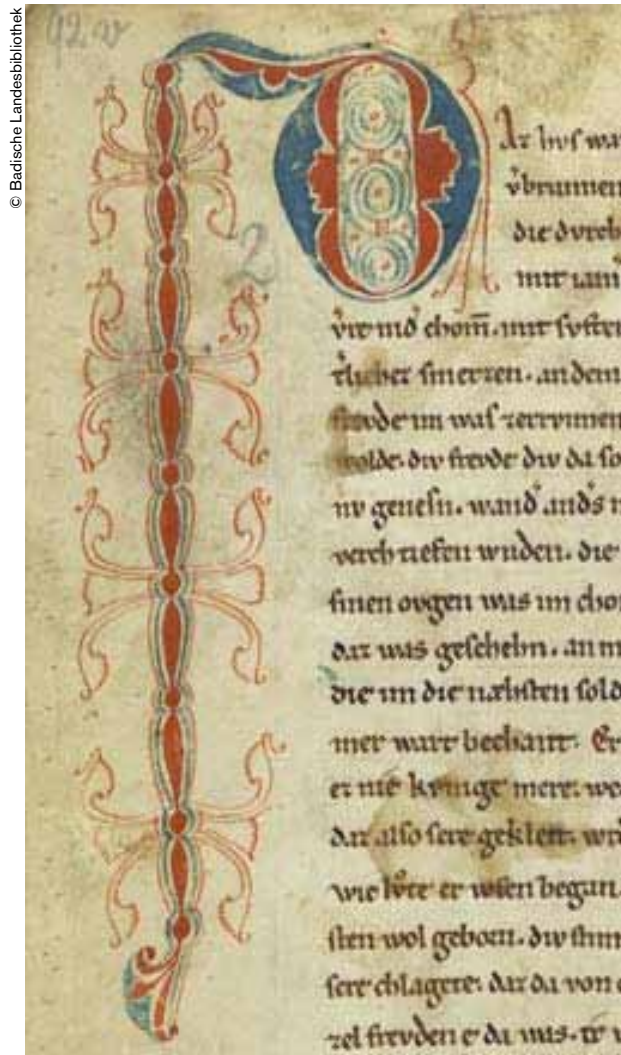 © Badische Landesbibliothek
92.v
2
DAz hvſ wa
v̓brunnen
die dvrch
mit iam̓
chom̄. mit ſvften
tlicher ſmerzen. an dem
frevde im waſ zerrvnnen
wolde. div frevde div da ſo
nv geneſn. wand̓ and̓s n
verch tiefen wnden. die
ſinen ovgen was im cho
daz was geſchehn. an m
die im die næhſten ſold
mer wart bechant. Er
er nie kvnige mere. wo
daz alſo ſere gekleit. wr
wie lvte er wfen began.
ſten wol geborn. div ſtim
ſere chlagete. daz da von
zel frevden e da was. ir